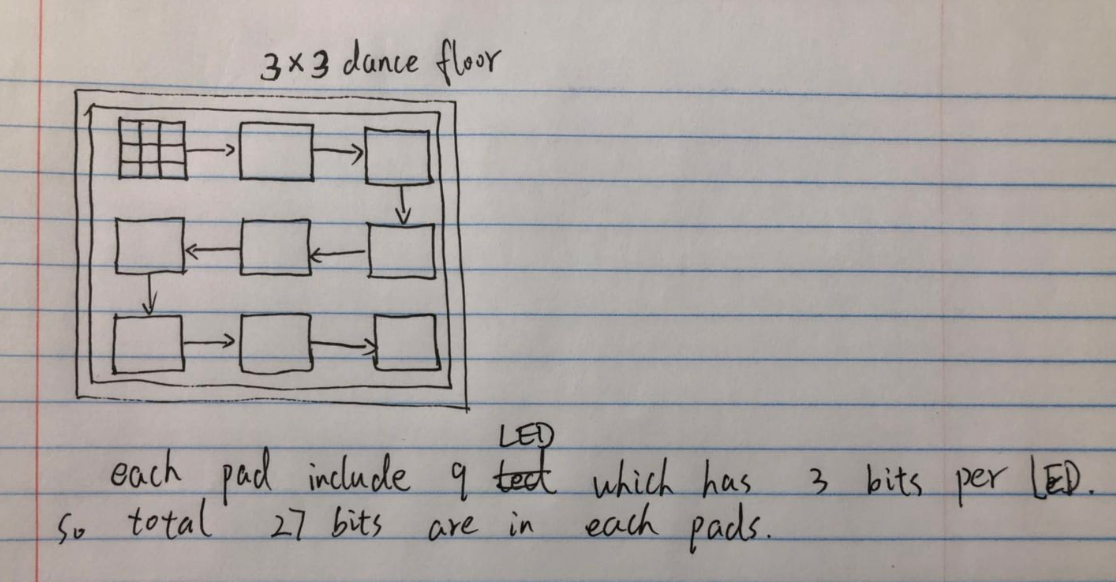 3×3 dance floor
LED
each pad include 9 ted which has 3 bits per LED.
So total 27 bits are in each pads.